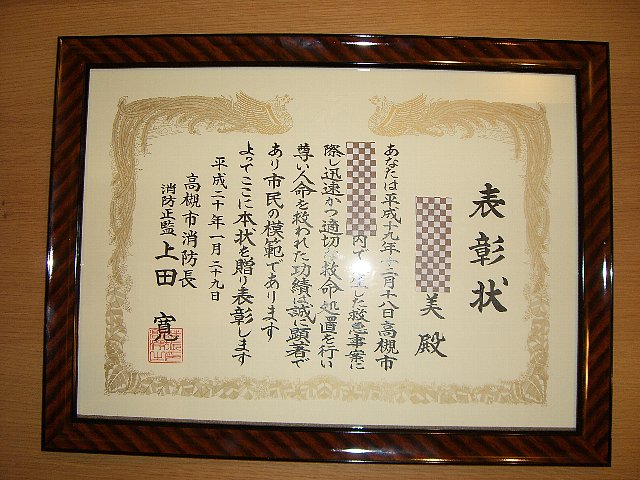 表彰状
美 殿
あなたは平成十九年十二月十八日高槻市
内で発生した救急事案に
際し迅速かつ適切な救命処置を行い
尊い人命を救われた功績は誠に顕著で
あり市民の模範であります
よってここに本状を贈り表彰します
平成二十年一月二十九日
高槻市消防長
消防正監 上田 寛